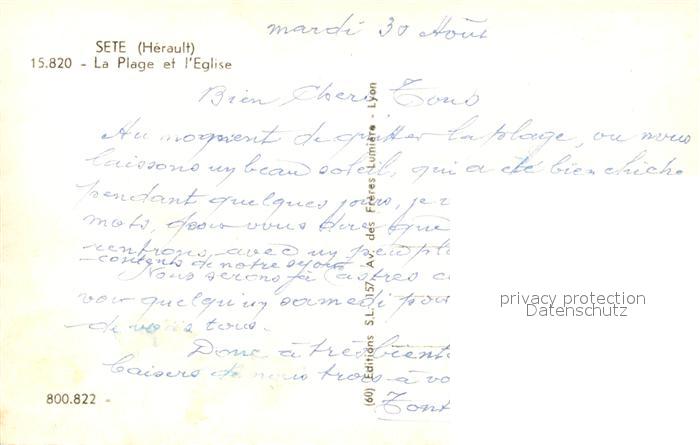 mardi 30 Août
SETE (Hérault)
15.820 - La Plage et l'Eglise
Bien Chers Tous
Au moment de quitter la plage, ou nous
laissons un beau soleil, qui a été bien chiche
pendant quelques jours, je
mots, pour vous dire que
rentrons, avec un peu
contents de notre séjour
Nous serons à Castres
voir quelqu'un samedi pour
de vous tous.
Donc à très bient
baisers de nous trois à vo
Tont
(60) Editions S.L. 157, Av. des Frères-Lumière - Lyon
privacy protection
Datenschutz
800.822 -